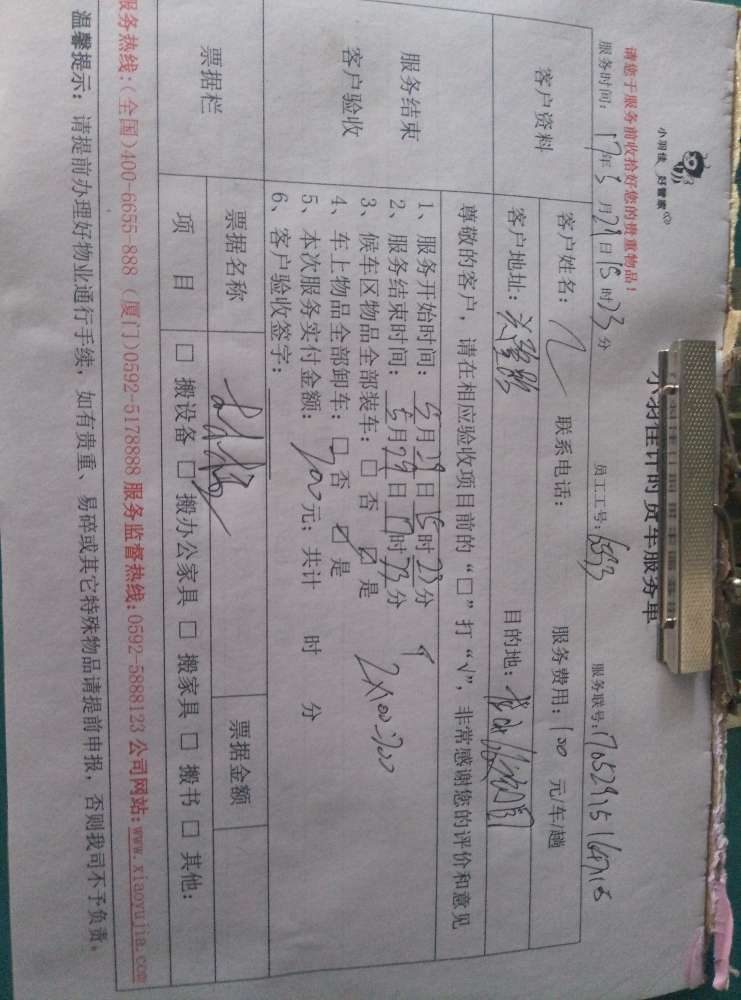 小羽佳 好管家
小羽佳计时货车服务单
请您于服务前收拾好您的贵重物品!
服务时间:17年5月29日15时23分 员工工号: 服务联号:
客户资料
客户姓名: 联系电话: 服务费用:100元/车/趟
客户地址: 目的地:
服务结束
客户验收
尊敬的客户,请在相应验收项目前的“□”打“√”,非常感谢您的评价和意见
1、服务开始时间:5月29日15时23分
2、服务结束时间:5月29日17时23分
3、候车区物品全部装车:□ 否 ☑ 是
4、车上物品全部卸车:□ 否 ☑ 是
2×100=200
5、本次服务实付金额:200元;共计 时 分
6、客户验收签字:
票据栏
票据名称 票据金额
项 目 □ 搬设备 □ 搬办公家具 □ 搬家具 □ 搬书 □ 其他:
服务热线:(全国)400-6655-888 (厦门)0592-5178888 服务监督热线:0592-5888123 公司网站:www.xiaoyujia.com
温馨提示:请提前办理好物业通行手续,如有贵重、易碎或其它特殊物品请提前申报,否则我司不予负责。